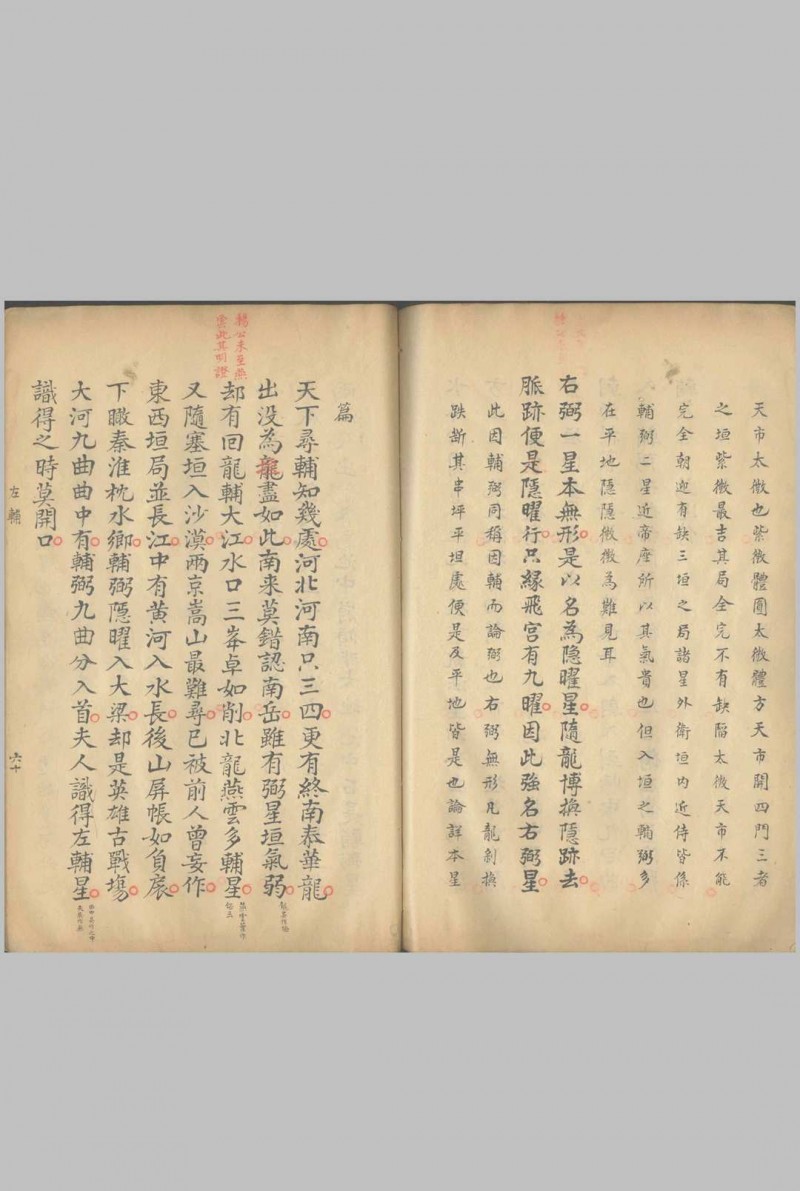 天市太微也紫微體圓太微體方天市開四門三者
之垣紫微最吉其局全完不有缺陷太後天市不能
完全朝迎有缺三垣之局諸星外衛垣内近侍皆係
輔弼二星近帝座所以其氣貴也但入垣之輔弼多
在平地隱隱微微為難見耳
右弼一星本無形是以名為隐曜星隨龍博換隱跡去
脈跡便是隱曜行只緣飛宫有九曜因此強名右弼星
此因輔弼同稱因輔而論弼也右弼無形凡龍剝換
跌斷其串坪平坦處便是及平地皆是也論詳本星
篇
天下尋輔知幾處河北河南只三四更有終南泰華龍
出没為龍盡如此南来莫錯認南岳雖有弼星垣氣弱
却有回龍輔大江水口三峯卓如削北龍燕雲多輔星
楊公未至燕
雲此其明證
又隨塞垣入沙漠兩京嵩山最難尋已被前人曾妄作
東西垣局並長江中有黄河入水長後山屏帳如負扆
下瞰秦淮枕水鄉輔弼隱曜入大梁却是英雄古戰塲
大河九曲曲中有輔弼九曲分入首夫人識得左輔星
識得之時莫開口
左輔
六十